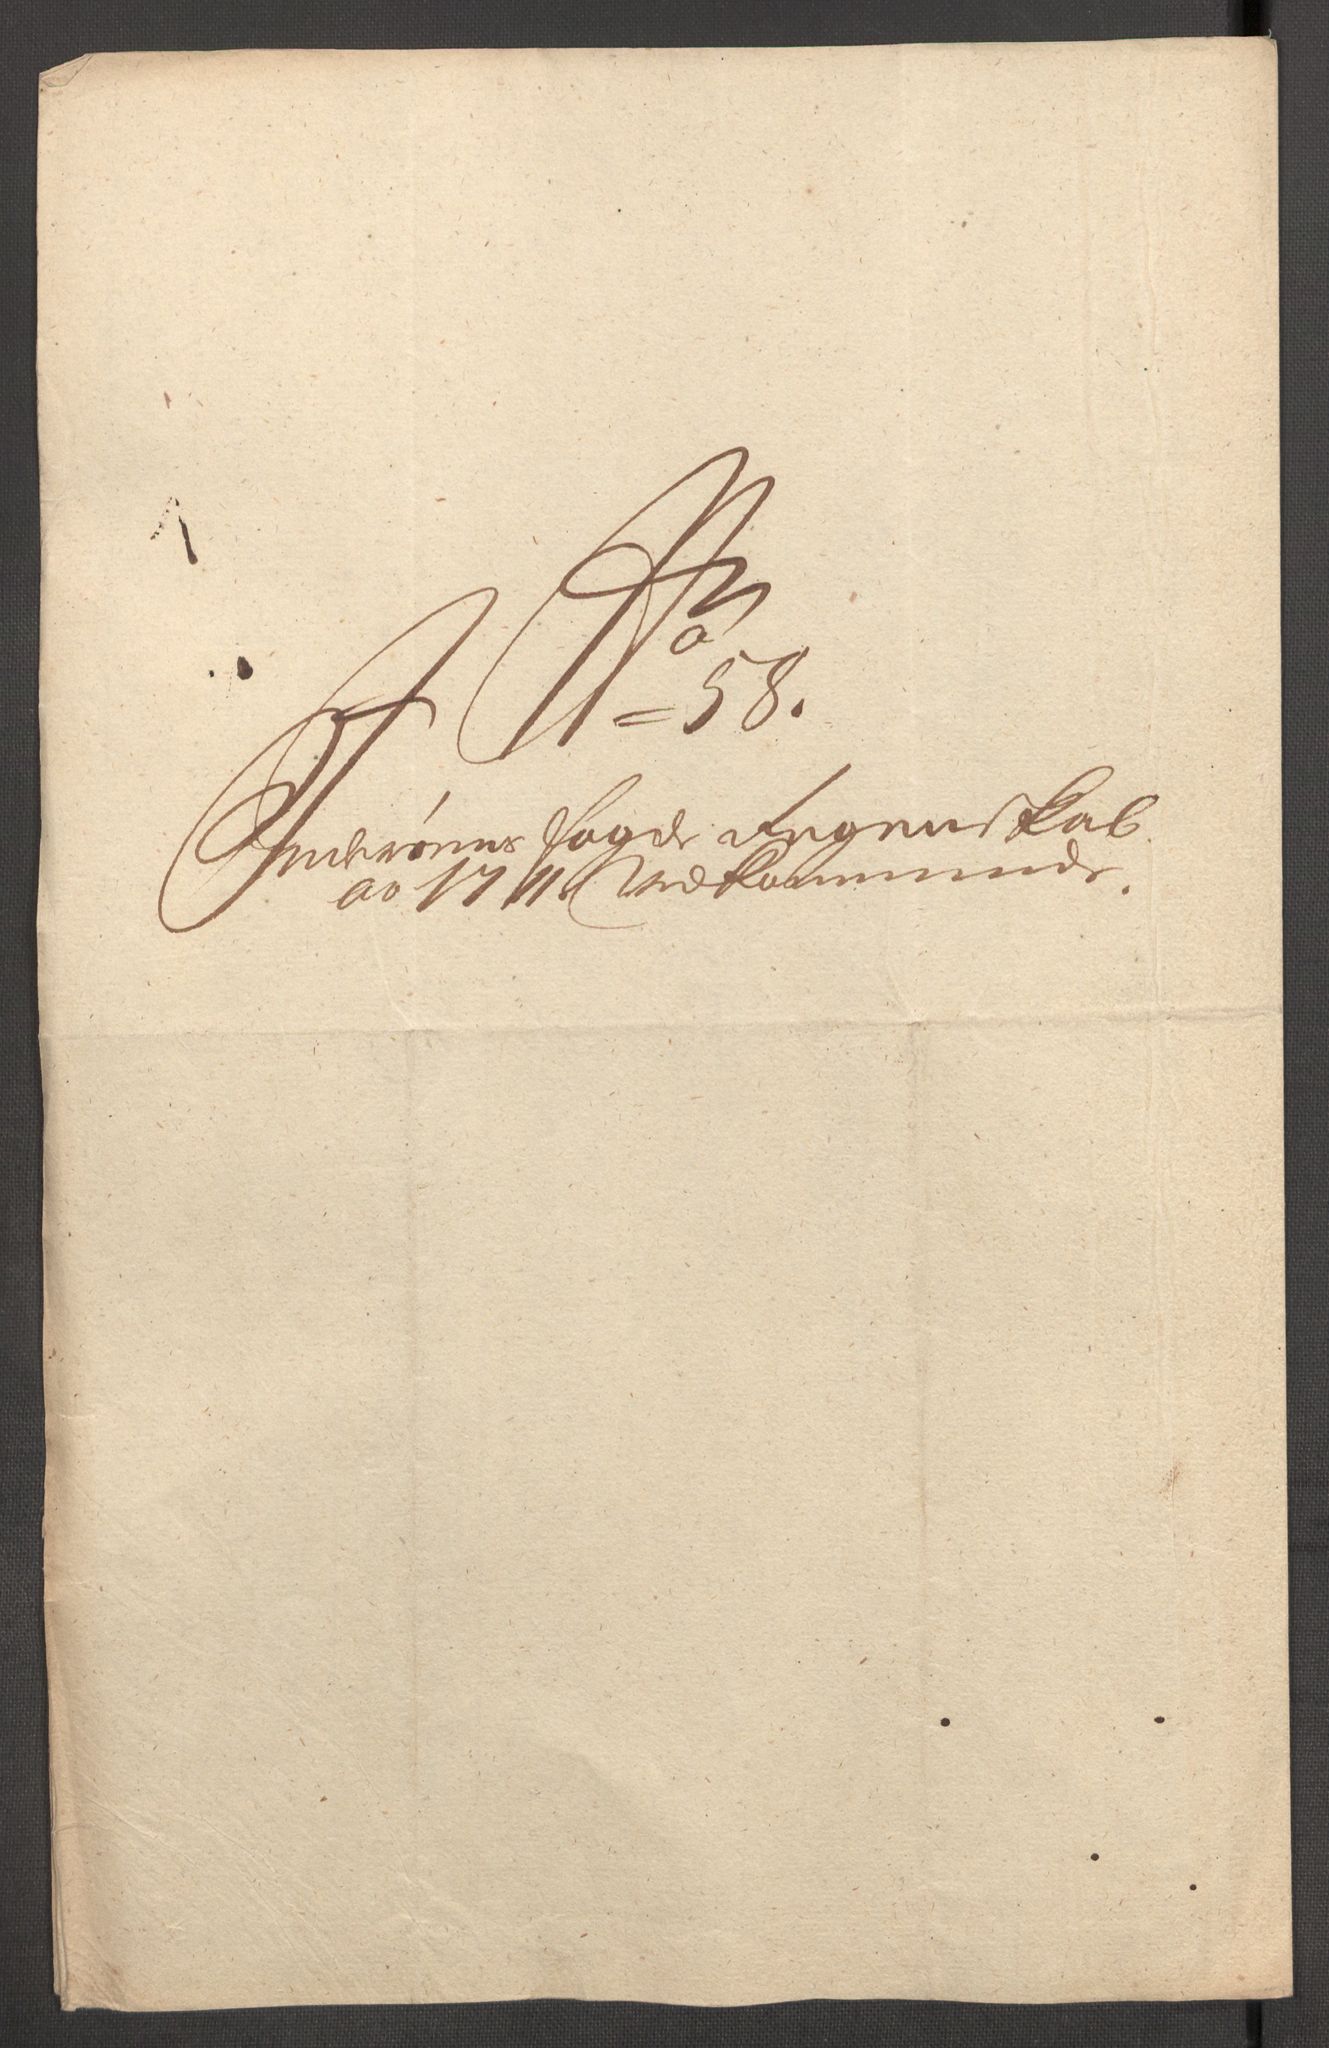 No
= 58.
Inderøens fogds Regenskab
ao 1711. Vedkommende.